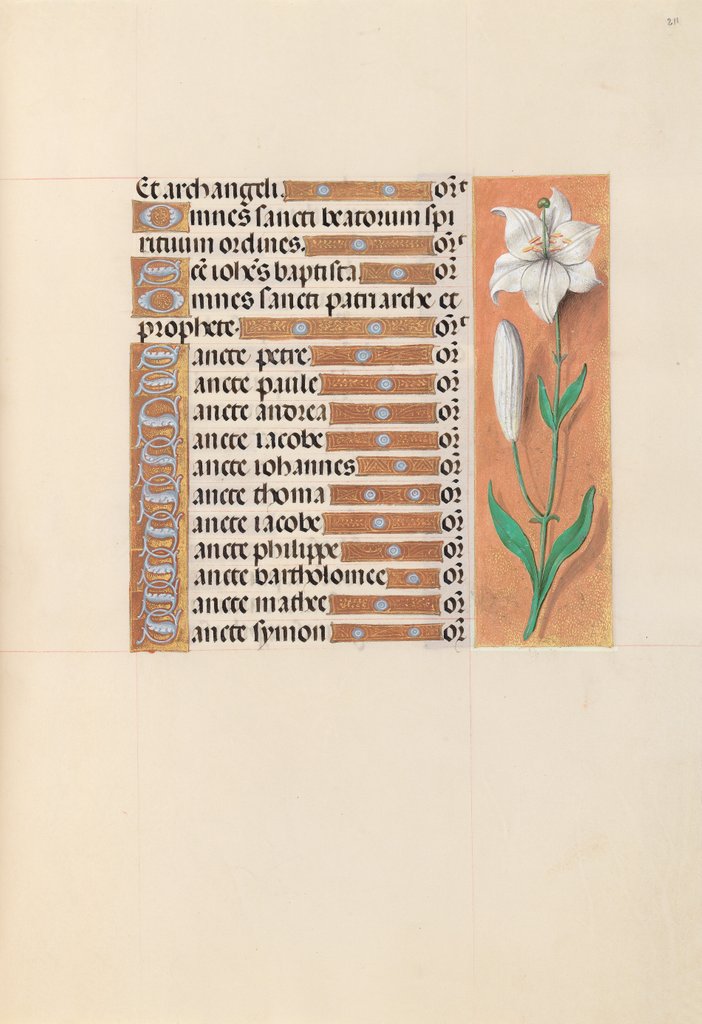 211
Et archangeli. or̃t
Omnes sancti beatorum spi
rituum ordines. or̃t
Sc̃e ioh̃es baptista or̃
Omnes sancti patriarche et
prophete. or̃t
Sancte petre or̃
Sancte paule or̃
Sancte andrea or̃
Sancte iacobe or̃
Sancte iohannes or̃
Sancte thoma or̃
Sancte iacobe or̃
Sancte philippe or̃
Sancte bartholomee or̃
Sancte mathee or̃
Sancte symon or̃